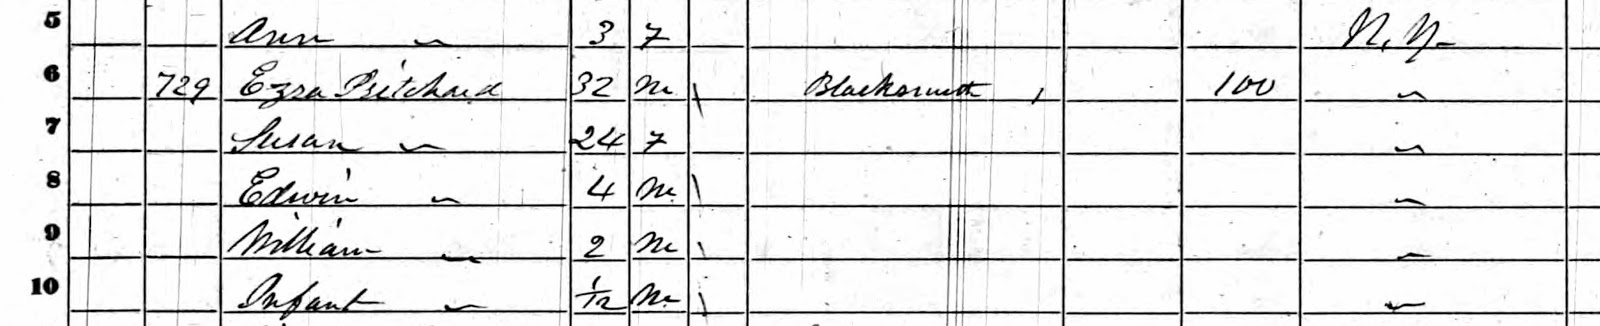 5 Ann " 3 F N.Y.
6 729 Ezra Pritchard 32 M \ Blacksmith , 100 "
7 Susan " 24 F "
8 Edwin " 4 M \ "
9 William " 2 M \ "
10 Infant " 1/12 M \ "